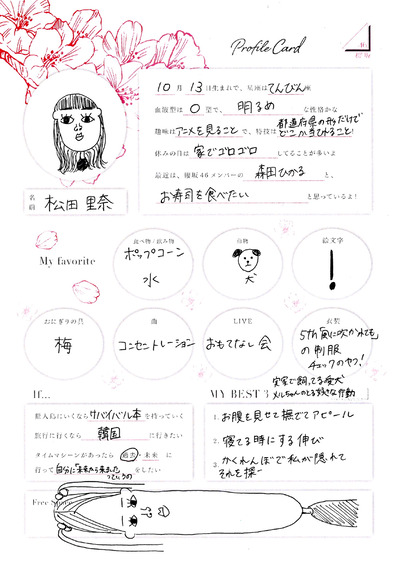 Profile Card
10月13日生まれで、星座はてんびん座
血液型はO型で、明るめな性格かな
趣味はアニメを見ることで、特技は都道府県の形だけでどこか当てれること!
休みの日は家でゴロゴロしてることが多いよ
最近は、櫻坂46メンバーの森田ひかると、
お寿司を食べたいと思っているよ!
名前 松田里奈
My favorite
食べ物/飲み物
ポップコーン
水
動物
犬
絵文字
!
おにぎりの具
梅
曲
コンセントレーション
LIVE
おもてなし会
衣装
5th「風に吹かれても」
の制服
チェックのヤツ!
If...
無人島にいくならサバイバル本を持っていく
旅行に行くなら韓国に行きたい
タイムマシーンがあったら過去・未来に
行って自分に未来から来ましたっていうのをしたい
MY BEST 3
実家で飼ってる愛犬
メルちゃんのとる好きな行動
1. お腹を見せて撫でてアピール
2. 寝てる時にする伸び
3. かくれんぼで私が隠れて
それを探す
Free Space